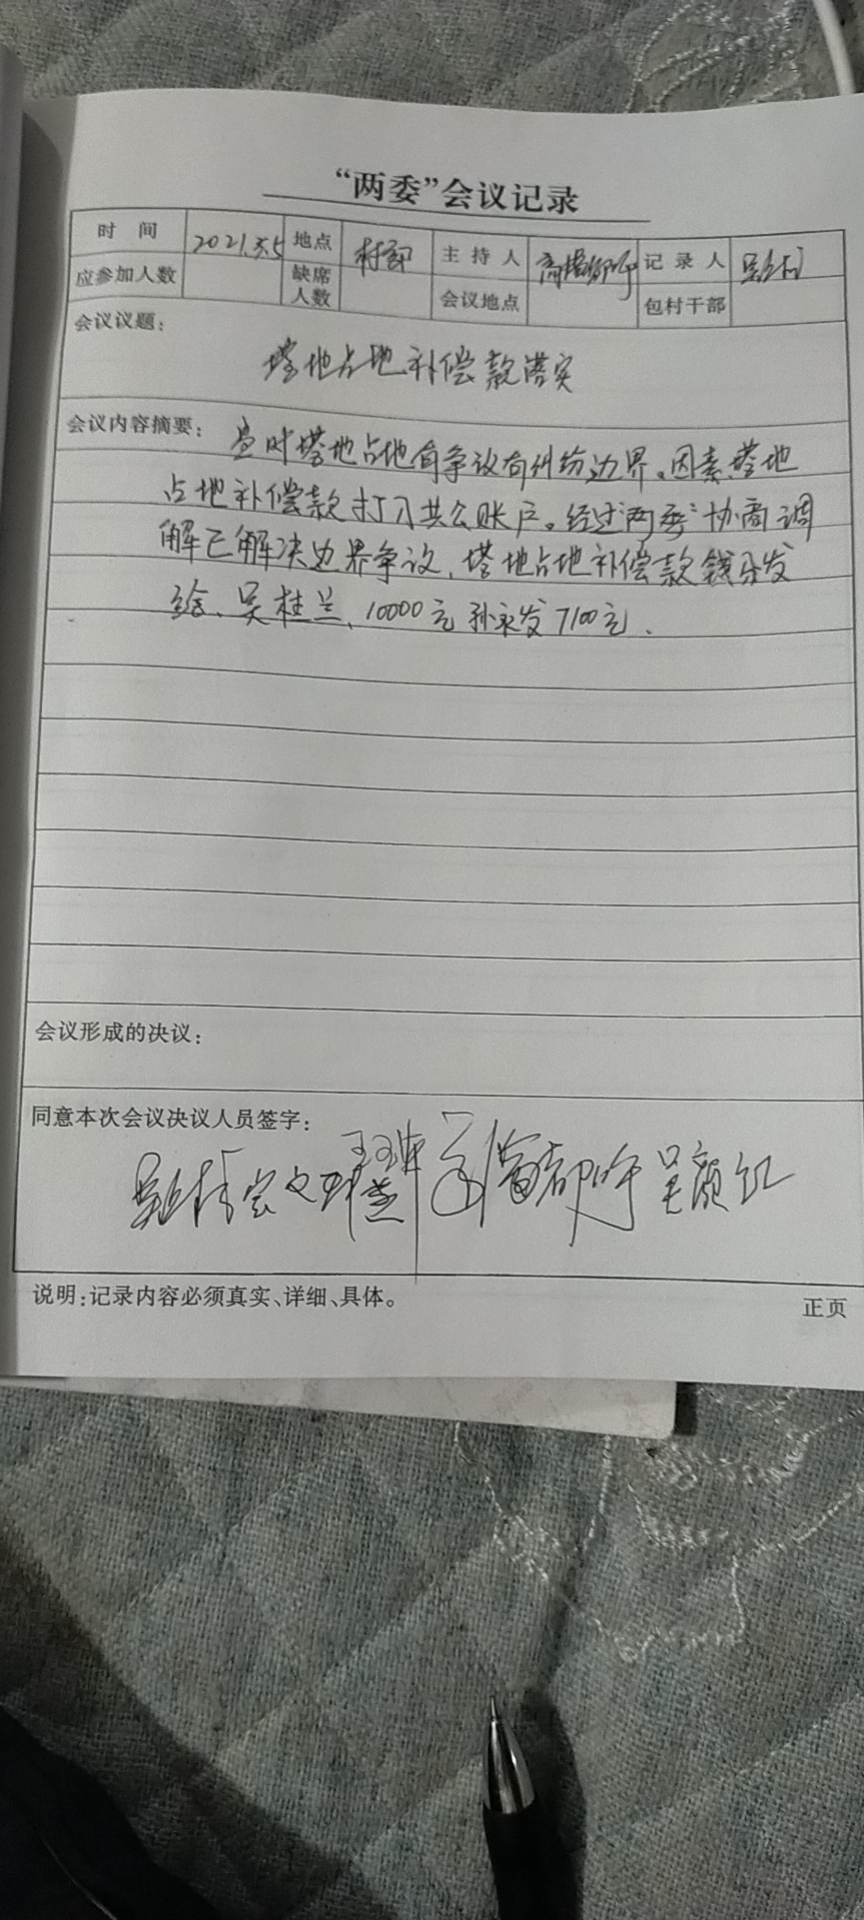 “两委”会议记录
时 间 2021.3.5 地点 村部 主 持 人 记 录 人
应参加人数 缺席人数 会议地点 包村干部
会议议题：
塔地占地补偿款落实
会议内容摘要： 当时塔地占地有争议有纠纷边界。因素塔地
占地补偿款打入共公账户。经过“两委”协商调
解已解决边界争议，塔地占地补偿款钱发
给、吴桂兰、10000元 孙永发7100元.
会议形成的决议：
同意本次会议决议人员签字：
吴颜红
说明：记录内容必须真实、详细、具体。
正页